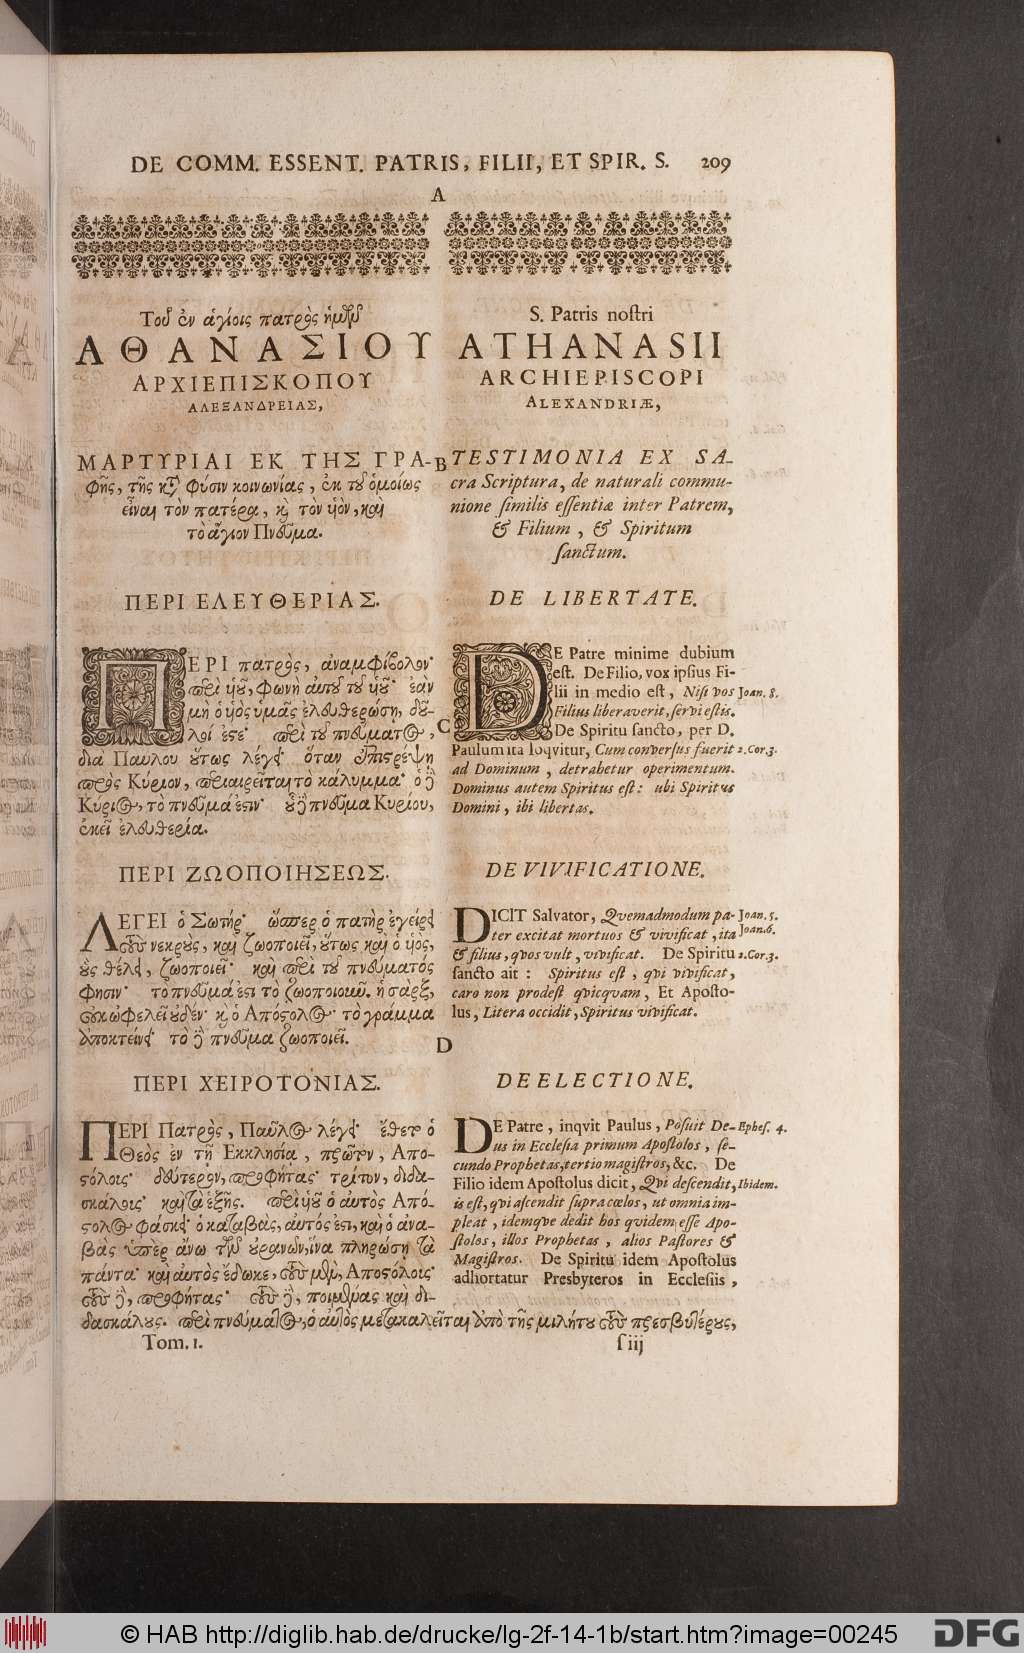 DE COMM. ESSENT. PATRIS, FILII, ET SPIR. S. 209
A
Τοῦ ἐν ἁγίοις πατρὸς ἡμῶν
ΑΘΑΝΑΣΙΟΥ
ΑΡΧΙΕΠΙΣΚΟΠΟΥ
ΑΛΕΞΑΝΔΡΕΙΑΣ,
ΜΑΡΤΥΡΙΑΙ ΕΚ ΤΗΣ ΓΡΑ-
φῆς, τῆς κατὰ φύσιν κοινωνίας, ἐκ τοῦ ὁμοίως
εἶναι τὸν πατέρα, καὶ τὸν υἱὸν, καὶ
τὸ ἅγιον Πνεῦμα.
ΠΕΡΙ ΕΛΕΥΘΕΡΙΑΣ.
ΠΕΡΙ πατρὸς, ἀναμφίβολον·
περὶ υἱοῦ, φωνὴ αὐτοῦ τοῦ υἱοῦ· ἐὰν
μὴ ὁ υἱὸς ὑμᾶς ἐλευθερώσῃ, δοῦ-
λοί ἐστε· περὶ τοῦ πνεύματος,
δια Παυλου οὕτως λέγει· ὅταν ἐπιστρέψῃ
πρὸς Κύριον, περιαιρεῖται τὸ κάλυμμα· ὁ δὲ
Κύριος, τὸ πνεῦμά ἐστιν· οὗ δὲ πνεῦμα Κυρίου,
ἐκεῖ ἐλευθερία.
ΠΕΡΙ ΖΩΟΠΟΙΗΣΕΩΣ.
ΛΕΓΕΙ ὁ Σωτήρ· ὥσπερ ὁ πατὴρ ἐγείρει
τοὺς νεκροὺς, καὶ ζωοποιεῖ, οὕτως καὶ ὁ υἱὸς,
οὓς θέλει, ζωοποιεῖ· καὶ περὶ τοῦ πνεύματός
φησιν· τὸ πνεῦμά ἐστι τὸ ζωοποιοῦν. ἡ σὰρξ,
οὐκ ὠφελεῖ οὐδέν· καὶ ὁ Απόστολος· τὸ γράμμα
ἀποκτείνει· τὸ δὲ πνεῦμα ζωοποιεῖ.
ΠΕΡΙ ΧΕΙΡΟΤΟΝΙΑΣ.
ΠΕΡΙ Πατρὸς, Παῦλος λέγει· ἔθετο ὁ
Θεὸς ἐν τῇ Εκκλησία, πρῶτον, Απο-
στόλοις· δεύτερον, προφήτας· τρίτον, διδα-
σκάλοις· καὶ τὰ ἑξῆς. περὶ υἱοῦ ὁ αὐτὸς Από-
στολος φάσκει· ὁ καταβὰς, αὐτός ἐστι, καὶ ὁ ἀνα-
βὰς ὑπὲρ ἄνω τῶν οὐρανῶν, ἵνα πληρώσῃ τὰ
πάντα· καὶ αὐτὸς ἔδωκε, τοὺς μὲν, Αποστόλοις·
τοὺς δὲ, προφήτας· τοὺς δὲ, ποιμένας καὶ δι-
δασκάλους. περὶ πνεύματος, ὁ αὐτὸς μετακαλεῖται ἀπὸ τῆς μιλήτου τοὺς πρεσβυτέρους,
Tom. 1.
S. Patris nostri
ATHANASII
ARCHIEPISCOPI
ALEXANDRIÆ,
B
TESTIMONIA EX SA-
cra Scriptura, de naturali commu-
nione similis essentiæ inter Patrem,
& Filium, & Spiritum
sanctum.
DE LIBERTATE.
DE Patre minime dubium
est. De Filio, vox ipsius Fi-
lii in medio est, Nisi vos Joan. 8.
Filius liberaverit, servi estis.
C
De Spiritu sancto, per D.
Paulum ita loqvitur, Cum conversus fuerit 2. Cor. 3.
ad Dominum, detrahetur operimentum.
Dominus autem Spiritus est: ubi Spiritus
Domini, ibi libertas.
DE VIVIFICATIONE.
DICIT Salvator, Qvemadmodum pa- Joan. 5.
ter excitat mortuos & vivificat, ita Joan. 6.
& filius, qvos vult, vivificat. De Spiritu 2. Cor. 3.
sancto ait: Spiritus est, qvi vivificat,
caro non prodest qvicqvam, Et Aposto-
lus, Litera occidit, Spiritus vivificat.
D
DE ELECTIONE.
DE Patre, inqvit Paulus, Posuit De- Ephes. 4.
us in Ecclesia primum Apostolos, se-
cundo Prophetas, tertio magistros, &c. De
Filio idem Apostolus dicit, Qvi descendit, Ibidem.
is est, qvi ascendit supra cœlos, ut omnia im-
pleat, idemqve dedit hos qvidem esse Apo-
stolos, illos Prophetas, alios Pastores &
Magistros. De Spiritu idem Apostolus
adhortatur Presbyteros in Ecclesiis,
S iij
© HAB http://diglib.hab.de/drucke/lg-2f-14-1b/start.htm?image=00245
DFG